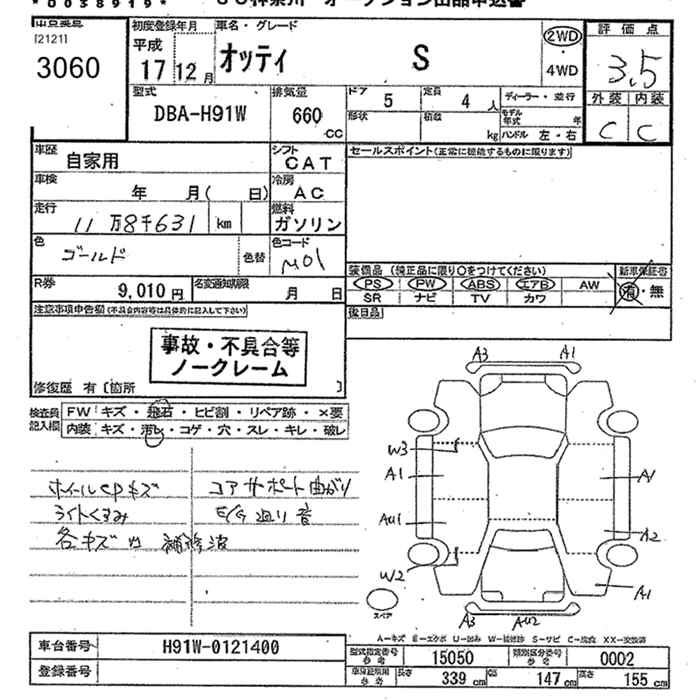 *0038919*
神奈川 オークション出品申込書
[2121]
3060
初度登録年月
平成
17 12月
車名・グレード
オッティ S
2WD
・
4WD
評価点
3.5
外装 内装
C C
型式
DBA-H91W
排気量
660
CC
ドア
5
定員
4 人
ディーラー・並行
形状
積載
kg
モデル年式
年
ハンドル 左・右
車歴
自家用
シフト
CAT
セールスポイント(正常に機能するものに限ります)
車検
年 月( 日)
冷房
AC
走行
11万8千631 km
燃料
ガソリン
色
ゴールド
色替
色コード
M01
装備品(純正品に限り○をつけてください)
新車保証書
PS PW ABS エアB AW
有・無
SR ナビ TV カワ
R券
9,010円
名変通知期限
月 日
後日品
注意事項申告欄(不具合内容等は具体的に記入して下さい)
事故・不具合等
ノークレーム
修復歴 有〔箇所 〕
検査員
記入欄
FW キズ・飛石・ヒビ割・リペア跡・×要
内装 キズ・汚レ・コゲ・穴・スレ・キレ・破レ
ホイールCPキズ
コアサポート曲がり
ライトくすみ
E/G廻り音
各キズ凹 補修波
A3 A1
W3
A1 A1
AU1
A2
W2
A1
スペア
A3 AU2
A-キズ E-エクボ U-凹み W-補修跡 S-サビ C-腐食 XX-交換済
車台番号
H91W-0121400
登録番号
型式指定番号
参考
15050
類別区分番号
参考
0002
車検証現用
参考
長さ
339 cm
幅
147 cm
高さ
155 cm